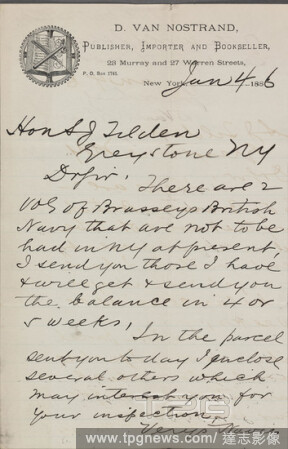 D. VAN NOSTRAND,
PUBLISHER, IMPORTER AND BOOKSELLER,
23 Murray and 27 Warren Streets,
P. O. Box 1765
New York, Jan 4 1886
Hon S J Tilden
Greystone NY
Dr Sir. There are 2
vols of Brasseys British
Navy that are not to be
had in NY at present,
I send you those I have
& will get & send you
the balance in 4 or
5 weeks,
In the parcel
sent you to day I enclose
several others which
may interest you for
your inspection,
www.tpgnews.com / 達志影像